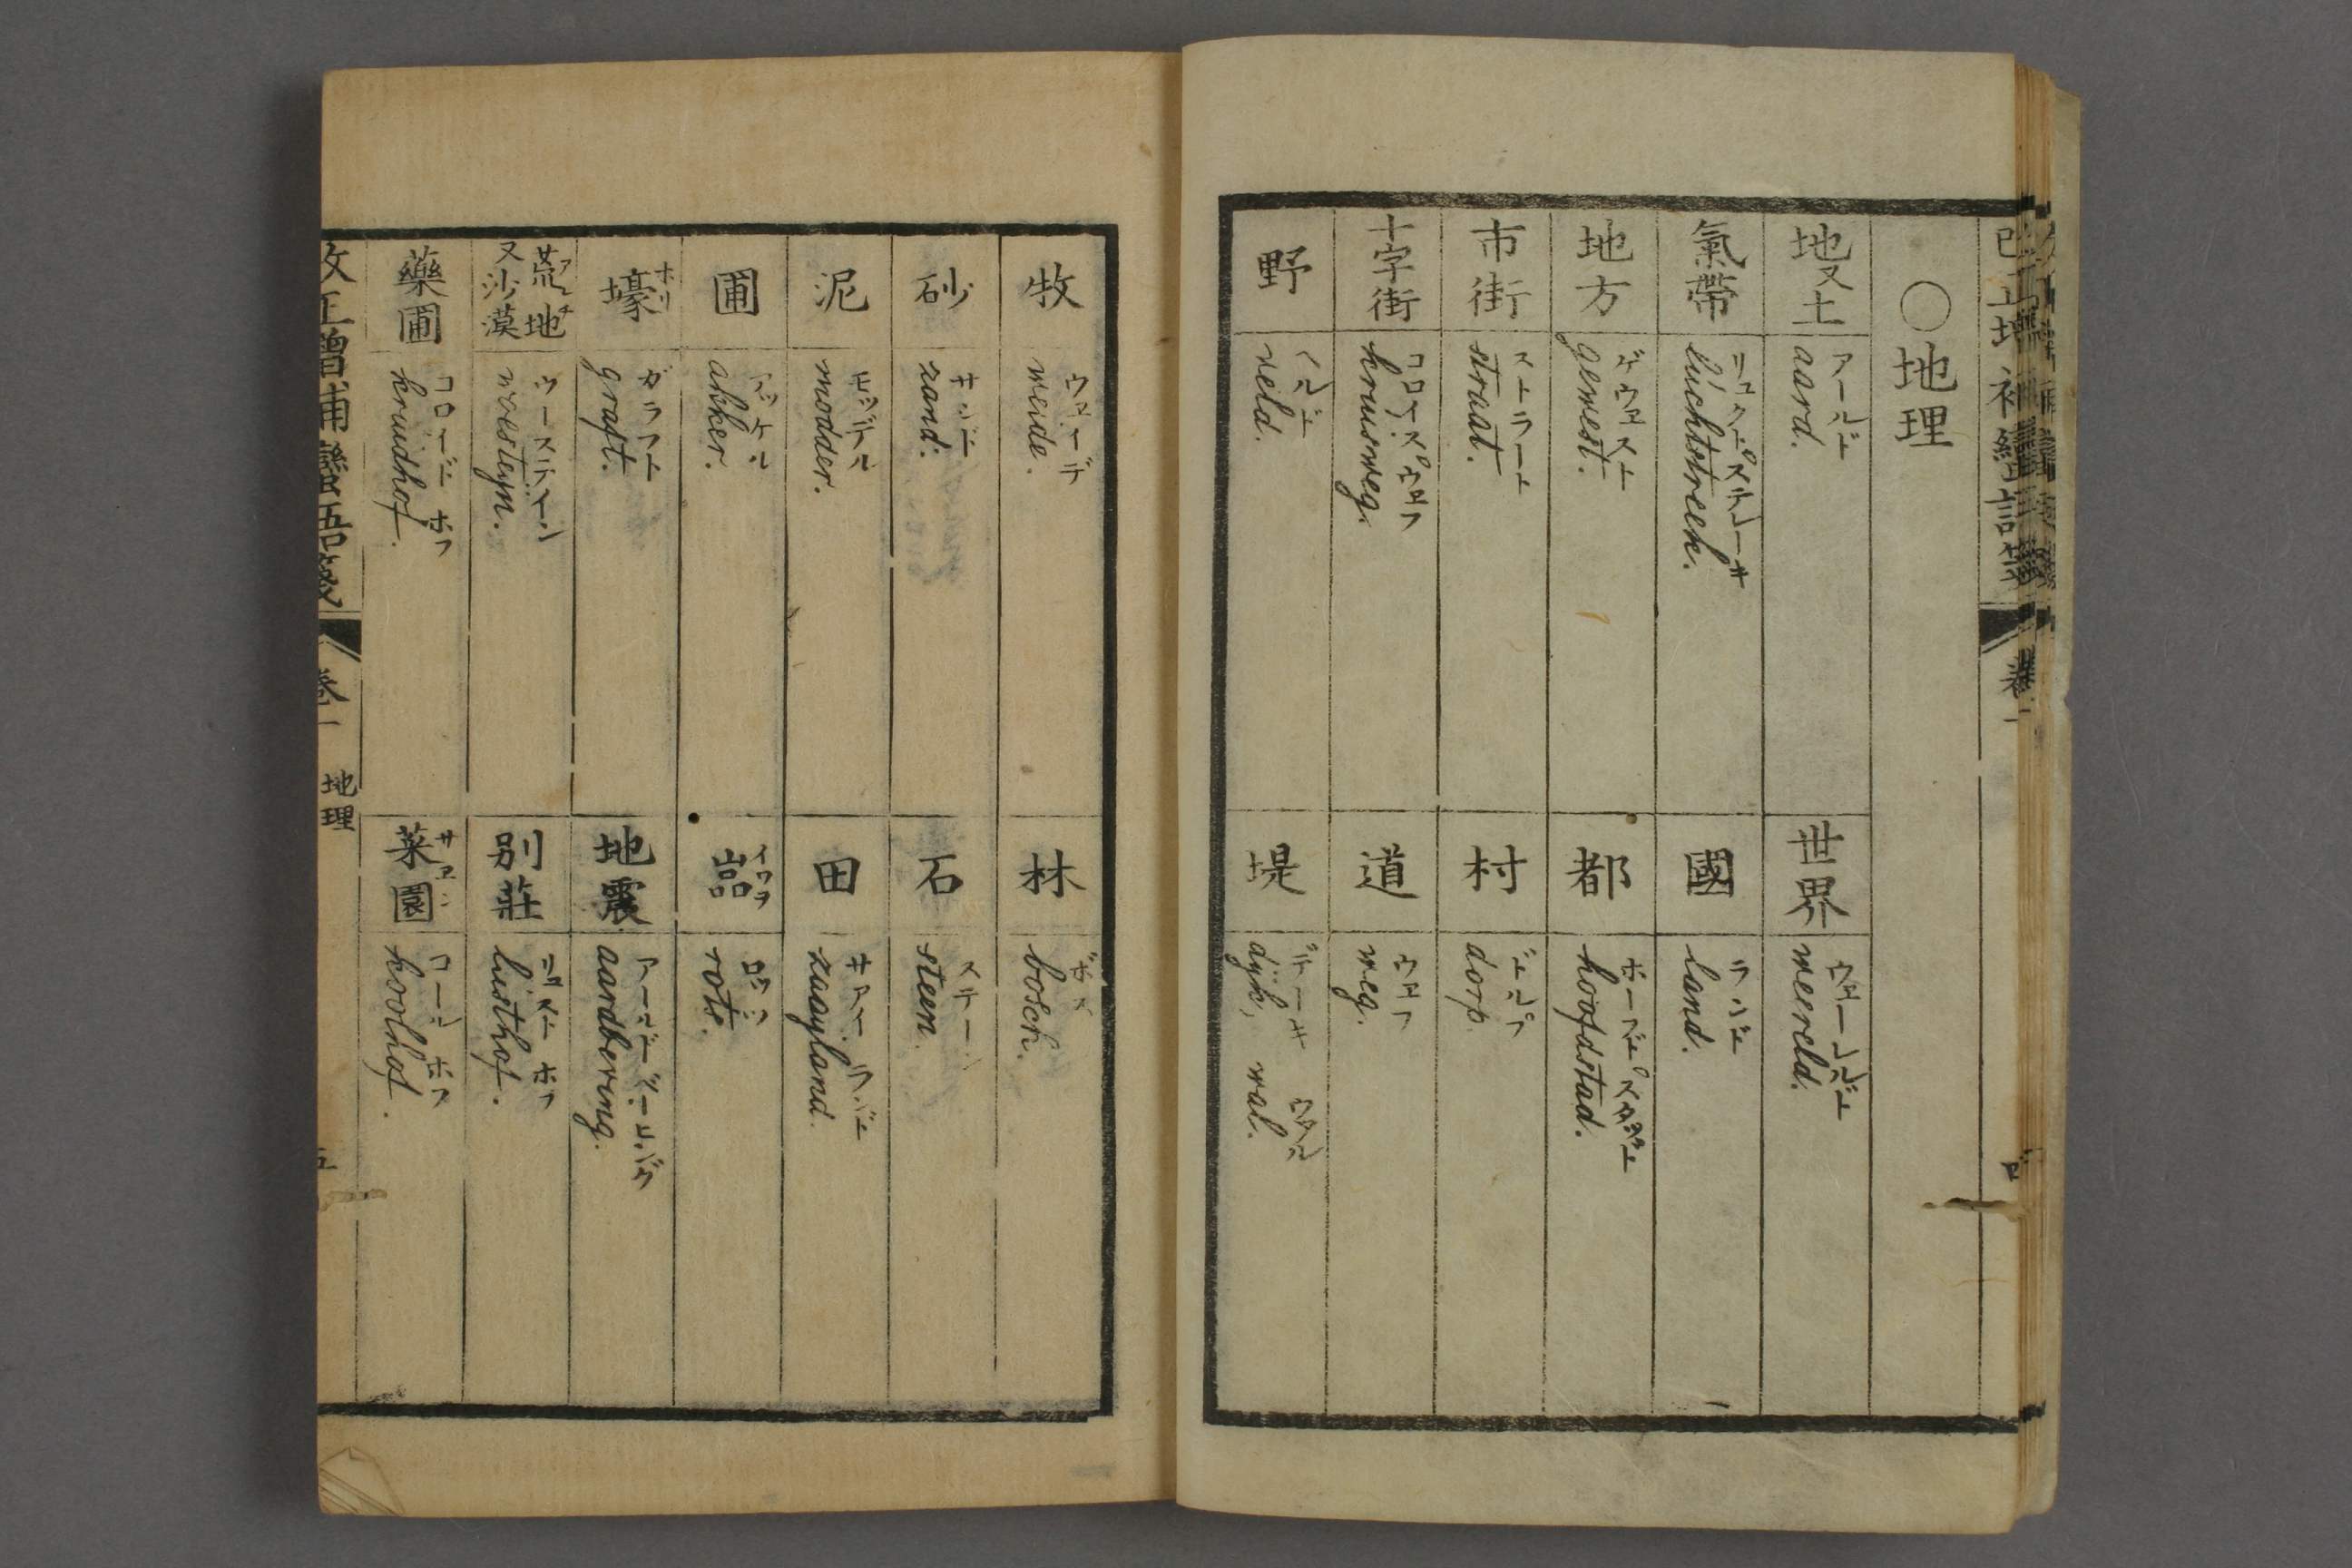 ○地理
地 又土
アールド
aard.
世界
ウェーレルド
weereld.
氣帶
リュクトストレーキ
lúchtstreek.
國
ランド
land.
地方
ゲウェスト
gewest.
都
ホーフドスタッド
hoofdstad.
市街
ストラート
straat.
村
ドルプ
dorp.
十字街
コロイスウェフ
kruisweg.
道
ウェフ
weg.
野
ヘルド
veld.
堤
デーキ ワル
dÿk, wal.
牧
ウェイデ
weide.
林
ボス
bosch.
砂
サンド
zand.
石
ステーン
steen.
泥
モッデル
modder.
田
サアイランド
zaayland.
圃
アッケル
akker.
嵓 イワヲ
ロッツ
rots.
壕 ホリ
ガラフト
graft.
地震
aardbering.
荒地 アレチ
又沙漠
ウーステイン
woesteyn.
別莊
リュストホフ
lústhof.
藥圃
コロイドホフ
kruidhof.
菜園 サヱン
コールホフ
koolhof.
改正增補蠻語箋 卷一 地理 五